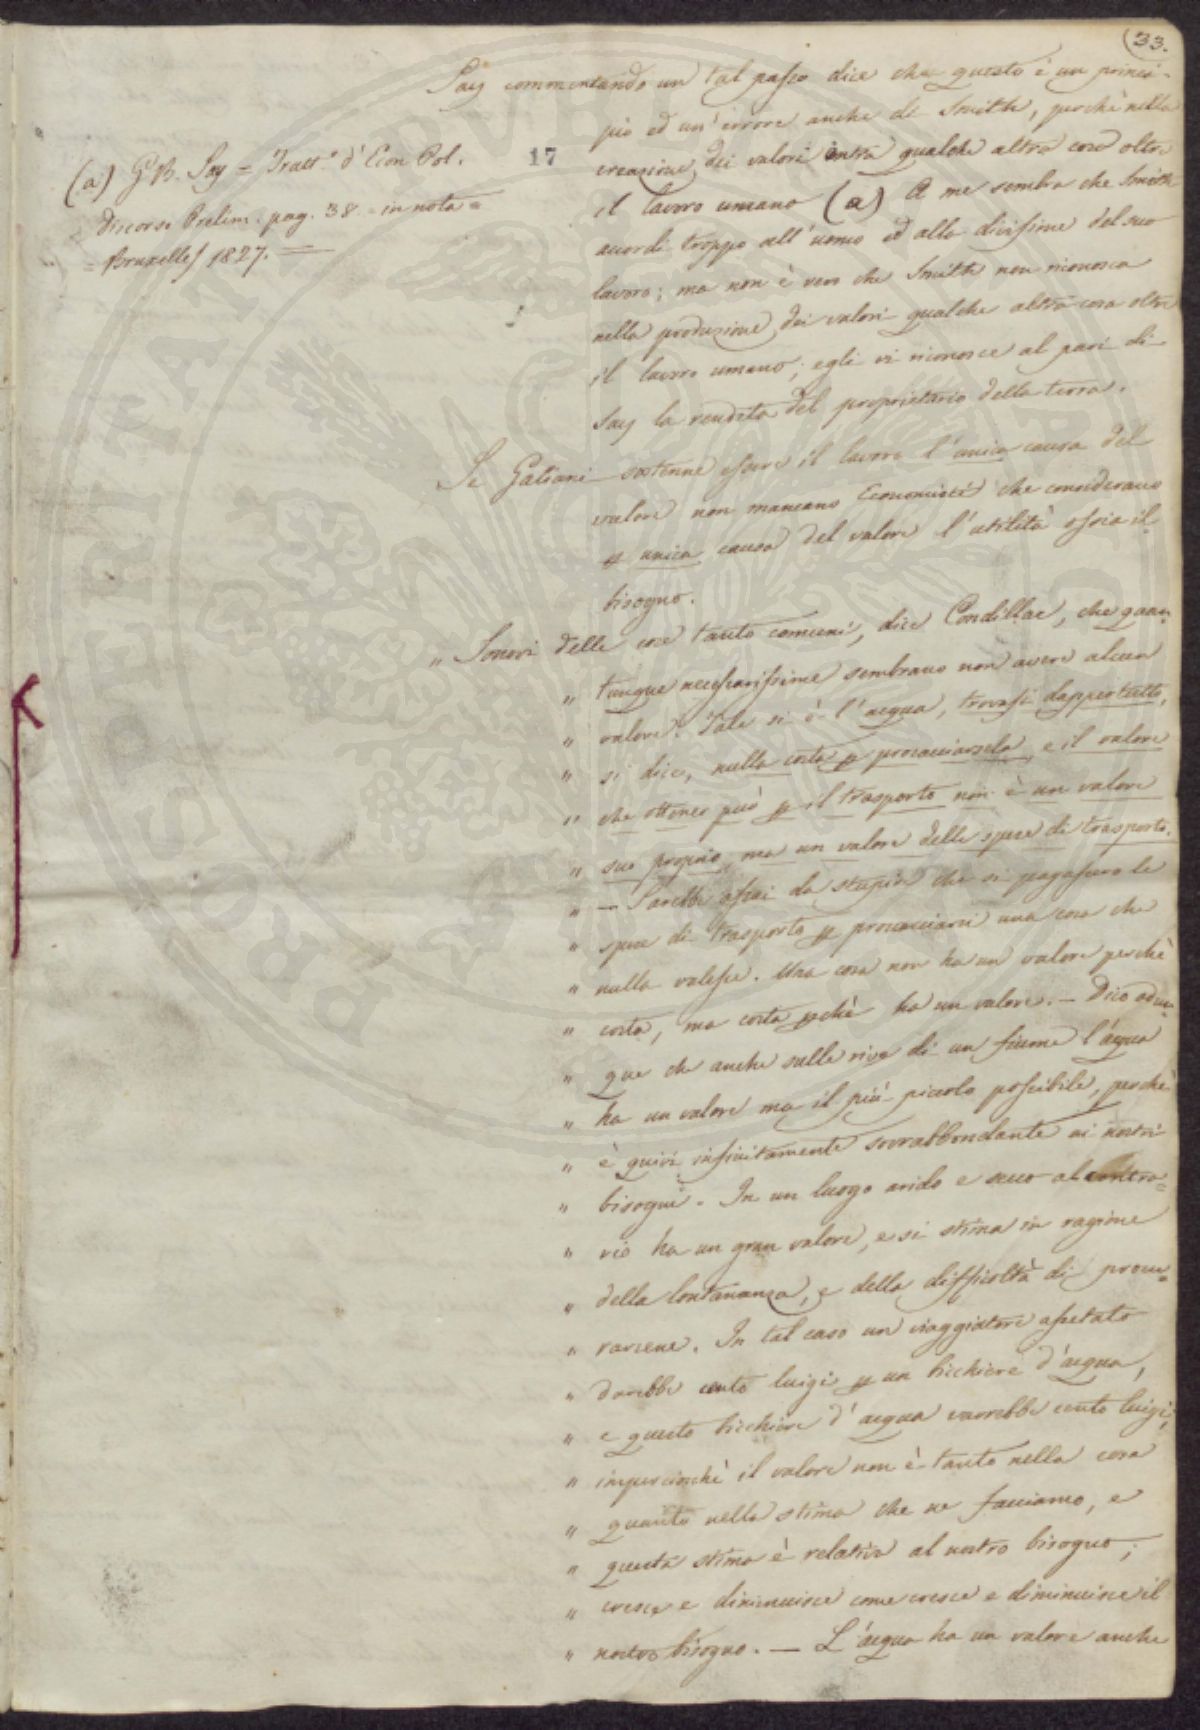 33.
Say commentando un tal passo dice che questo è un princi-
pio ed un' errore anche di Smith, perchè nella
creazione dei valori entra qualche altra cosa oltre
il lavoro umano (a) A me sembra che Smith
accordi troppo all'uomo ed alla divisione del suo
lavoro; ma non è vero che Smith non riconosca
nella produzione dei valori qualche altra cosa oltre
il lavoro umano; egli vi riconosce al pari di
Say la rendita del proprietario della terra.
(a) G. B. Say = Tratt.o d'Econ Pol.
Discorso Prelim. pag. 38 = in nota =
= Bruxelles 1827. =
17
Se Galiani sostenne essere il lavoro l'unica causa del
valore non mancano Economisti che considerano
p unica causa del valore l'utilità ossia il
bisogno.
" Sonovi delle cose tanto comuni, dice Condillac, che quan-
" tunque necessarissime sembrano non avere alcun
" valore. Tale si è l'acqua, trovasi dappertutto,
" si dice, nulla costa p procacciarsela, e il valore
" che ottener può p il trasporto non è un valore
" suo proprio, ma un valore delle spese di trasporto.
" — Sarebbe assai da stupire che si pagassero le
" spese di trasporto p procacciarsi una cosa che
" nulla valesse. Una cosa non ha un valore perchè
" costa, ma costa pchè ha un valore. — Dico adun-
" que che anche sulle rive di un fiume l'acqua
" ha un valore ma il più piccolo possibile, perchè
" è quivi infinitamente sovrabbondante ai nostri
" bisogni. In un luogo arido e secco al contra=
" rio ha un gran valore, e si stima in ragione
" della lontananza, e della difficoltà di procu=
" rarsene. In tal caso un viaggiatore assetato
" darebbe cento luigi p un bicchiere d'acqua,
" e questo bicchiere d'acqua varrebbe cento luigi;
" imperciocchè il valore non è tanto nella cosa
" quanto nella stima che ne facciamo, e
" questa stima è relativa al nostro bisogno;
" cresce e diminuisce come cresce e diminuisce il
" nostro bisogno. — L'acqua ha un valore anche